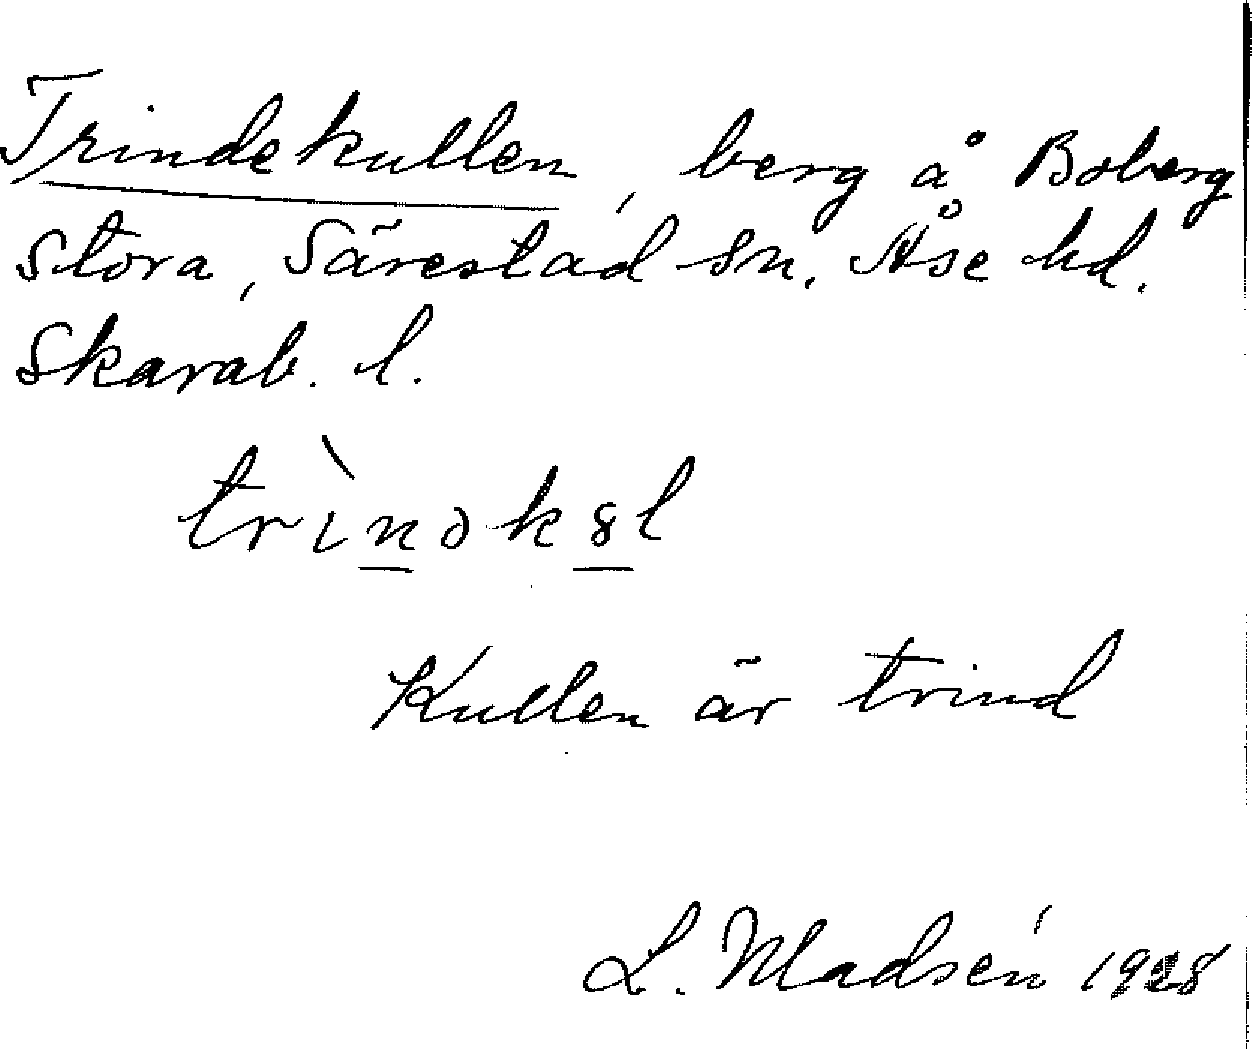 Trindekullen, berg å Boberg
Stora, Särestad sn. Åse hd.
Skarab. l.
Kullen är trind
L. Madsén 1928